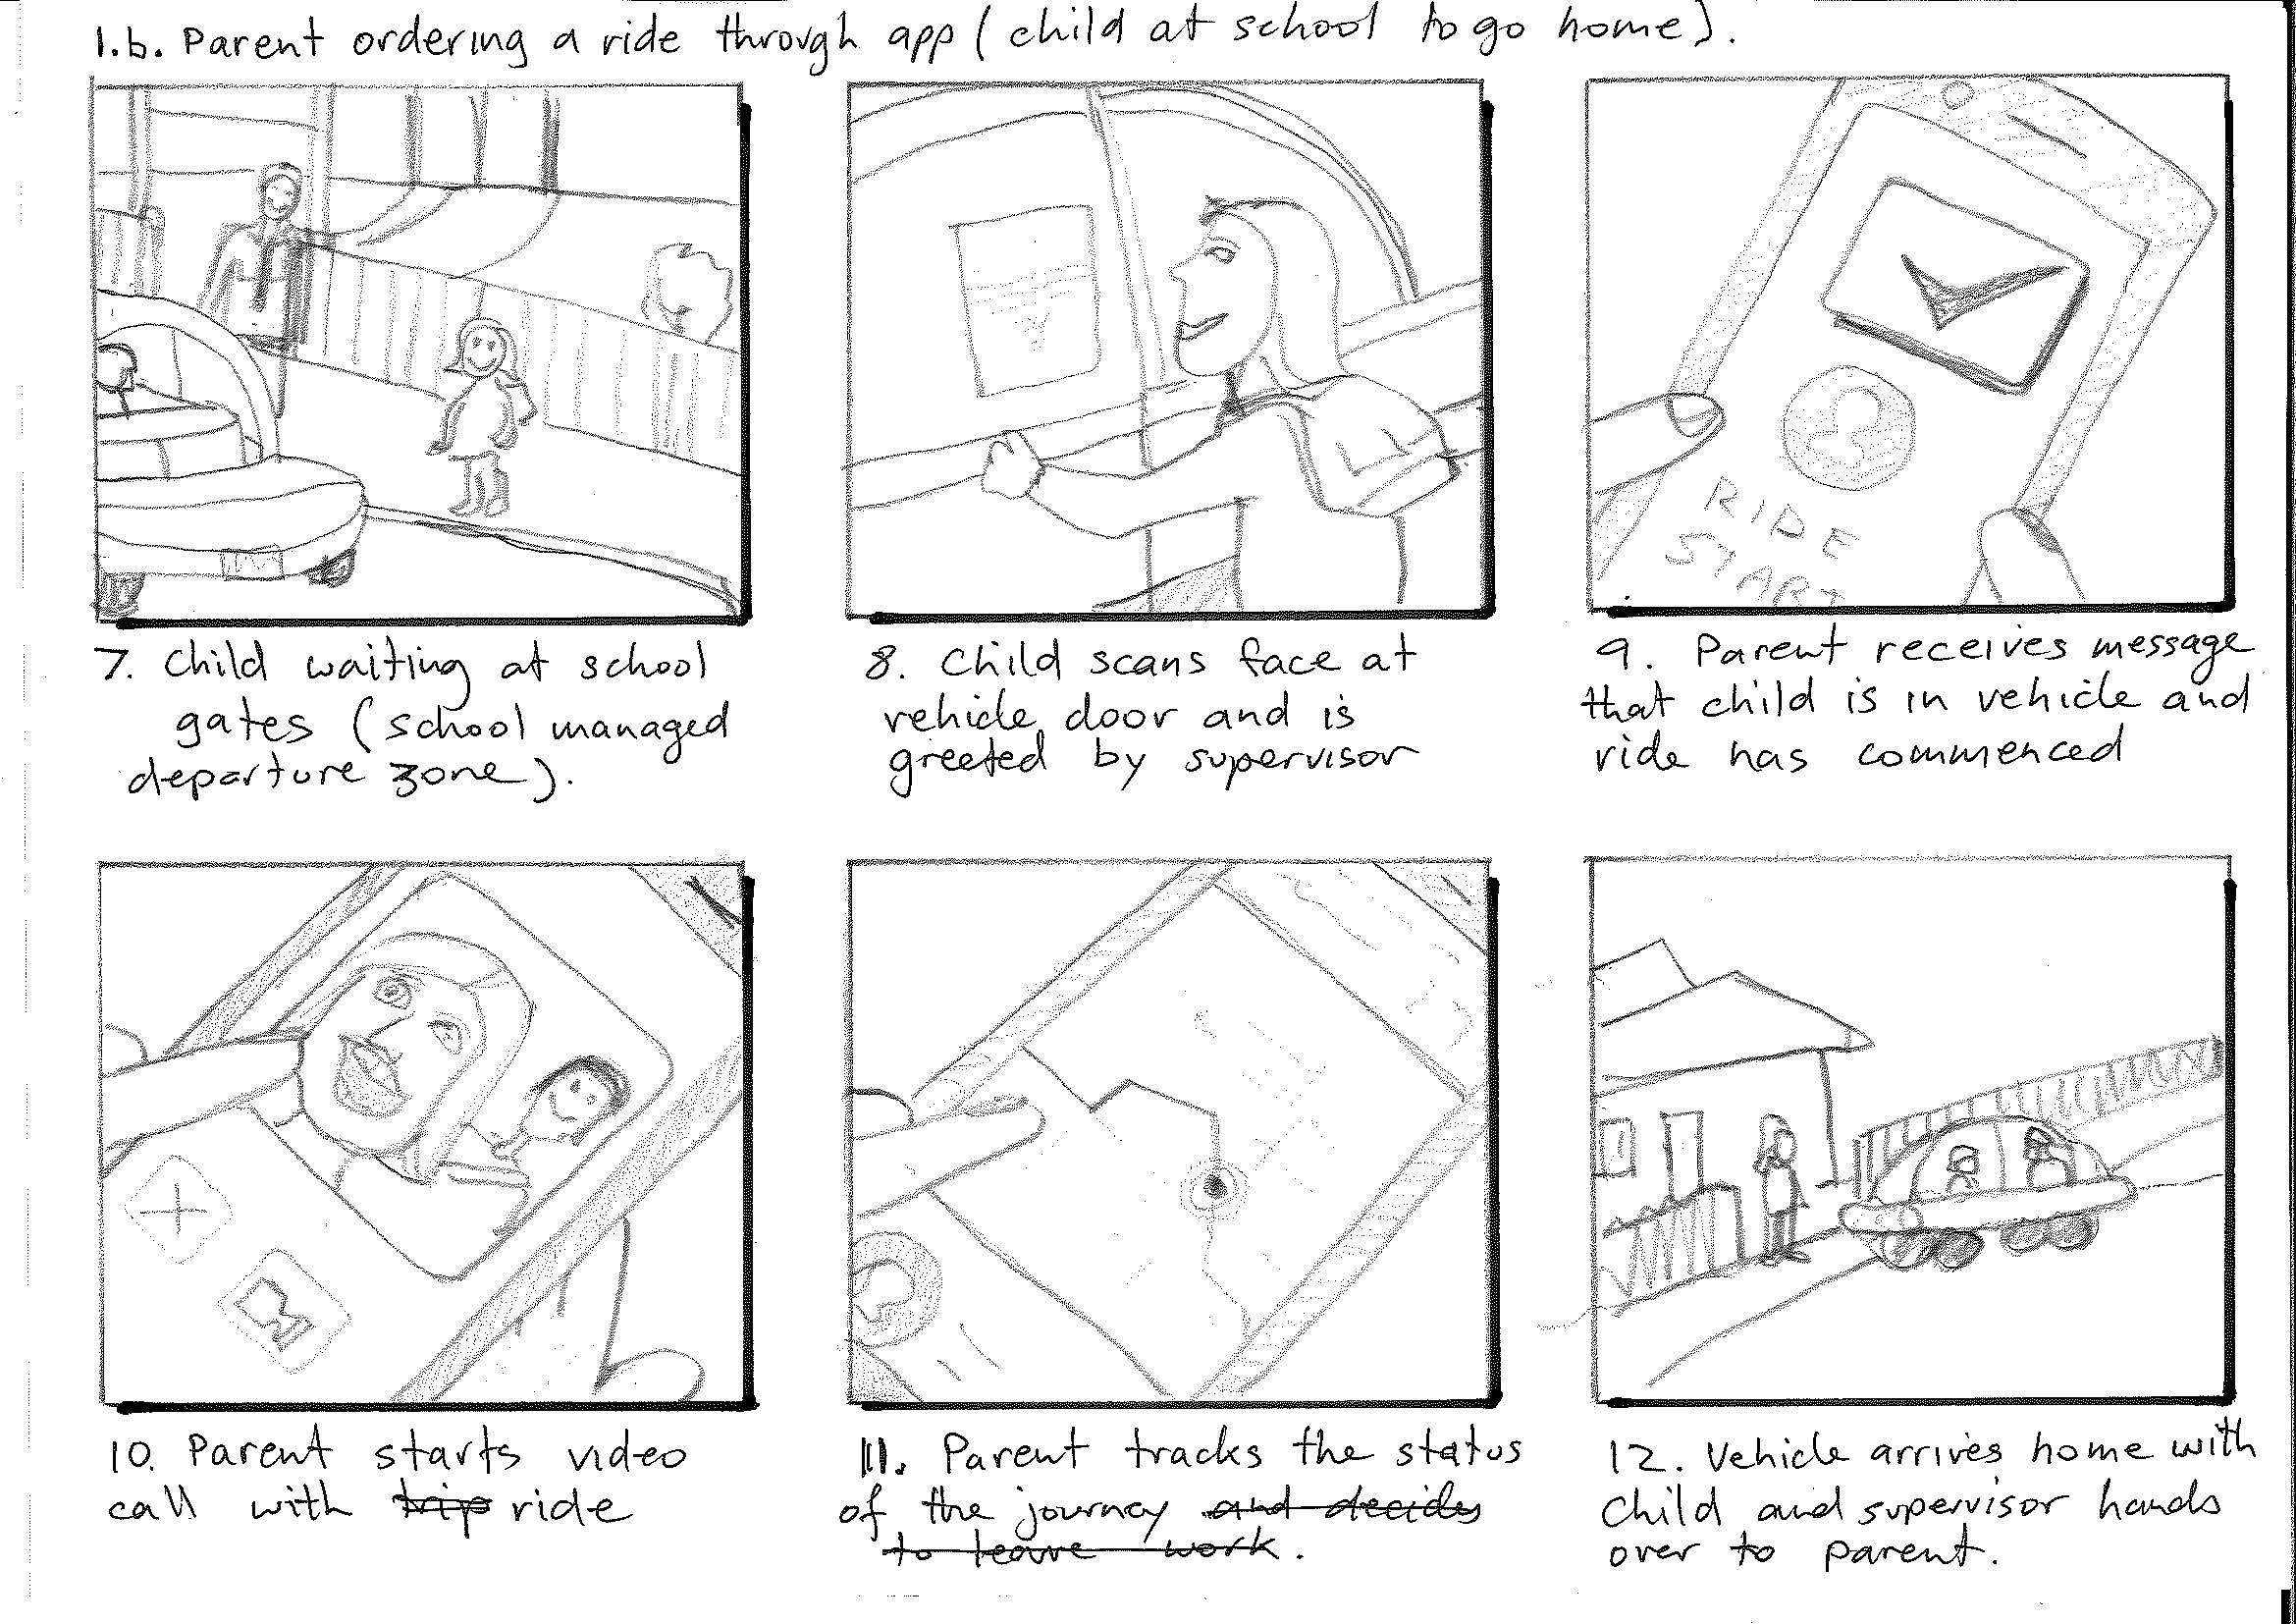 1.b. Parent ordering a ride through app (child at school to go home).
RIDE
START
7. Child waiting at school
gates (school managed
departure zone).
8. Child scans face at
vehicle door and is
greeted by supervisor
9. Parent receives message
that child is in vehicle and
ride has commenced
10. Parent starts video
call with trip ride
11. Parent tracks the status
of the journey and decides
to leave work.
12. Vehicle arrives home with
child and supervisor hands
over to parent.